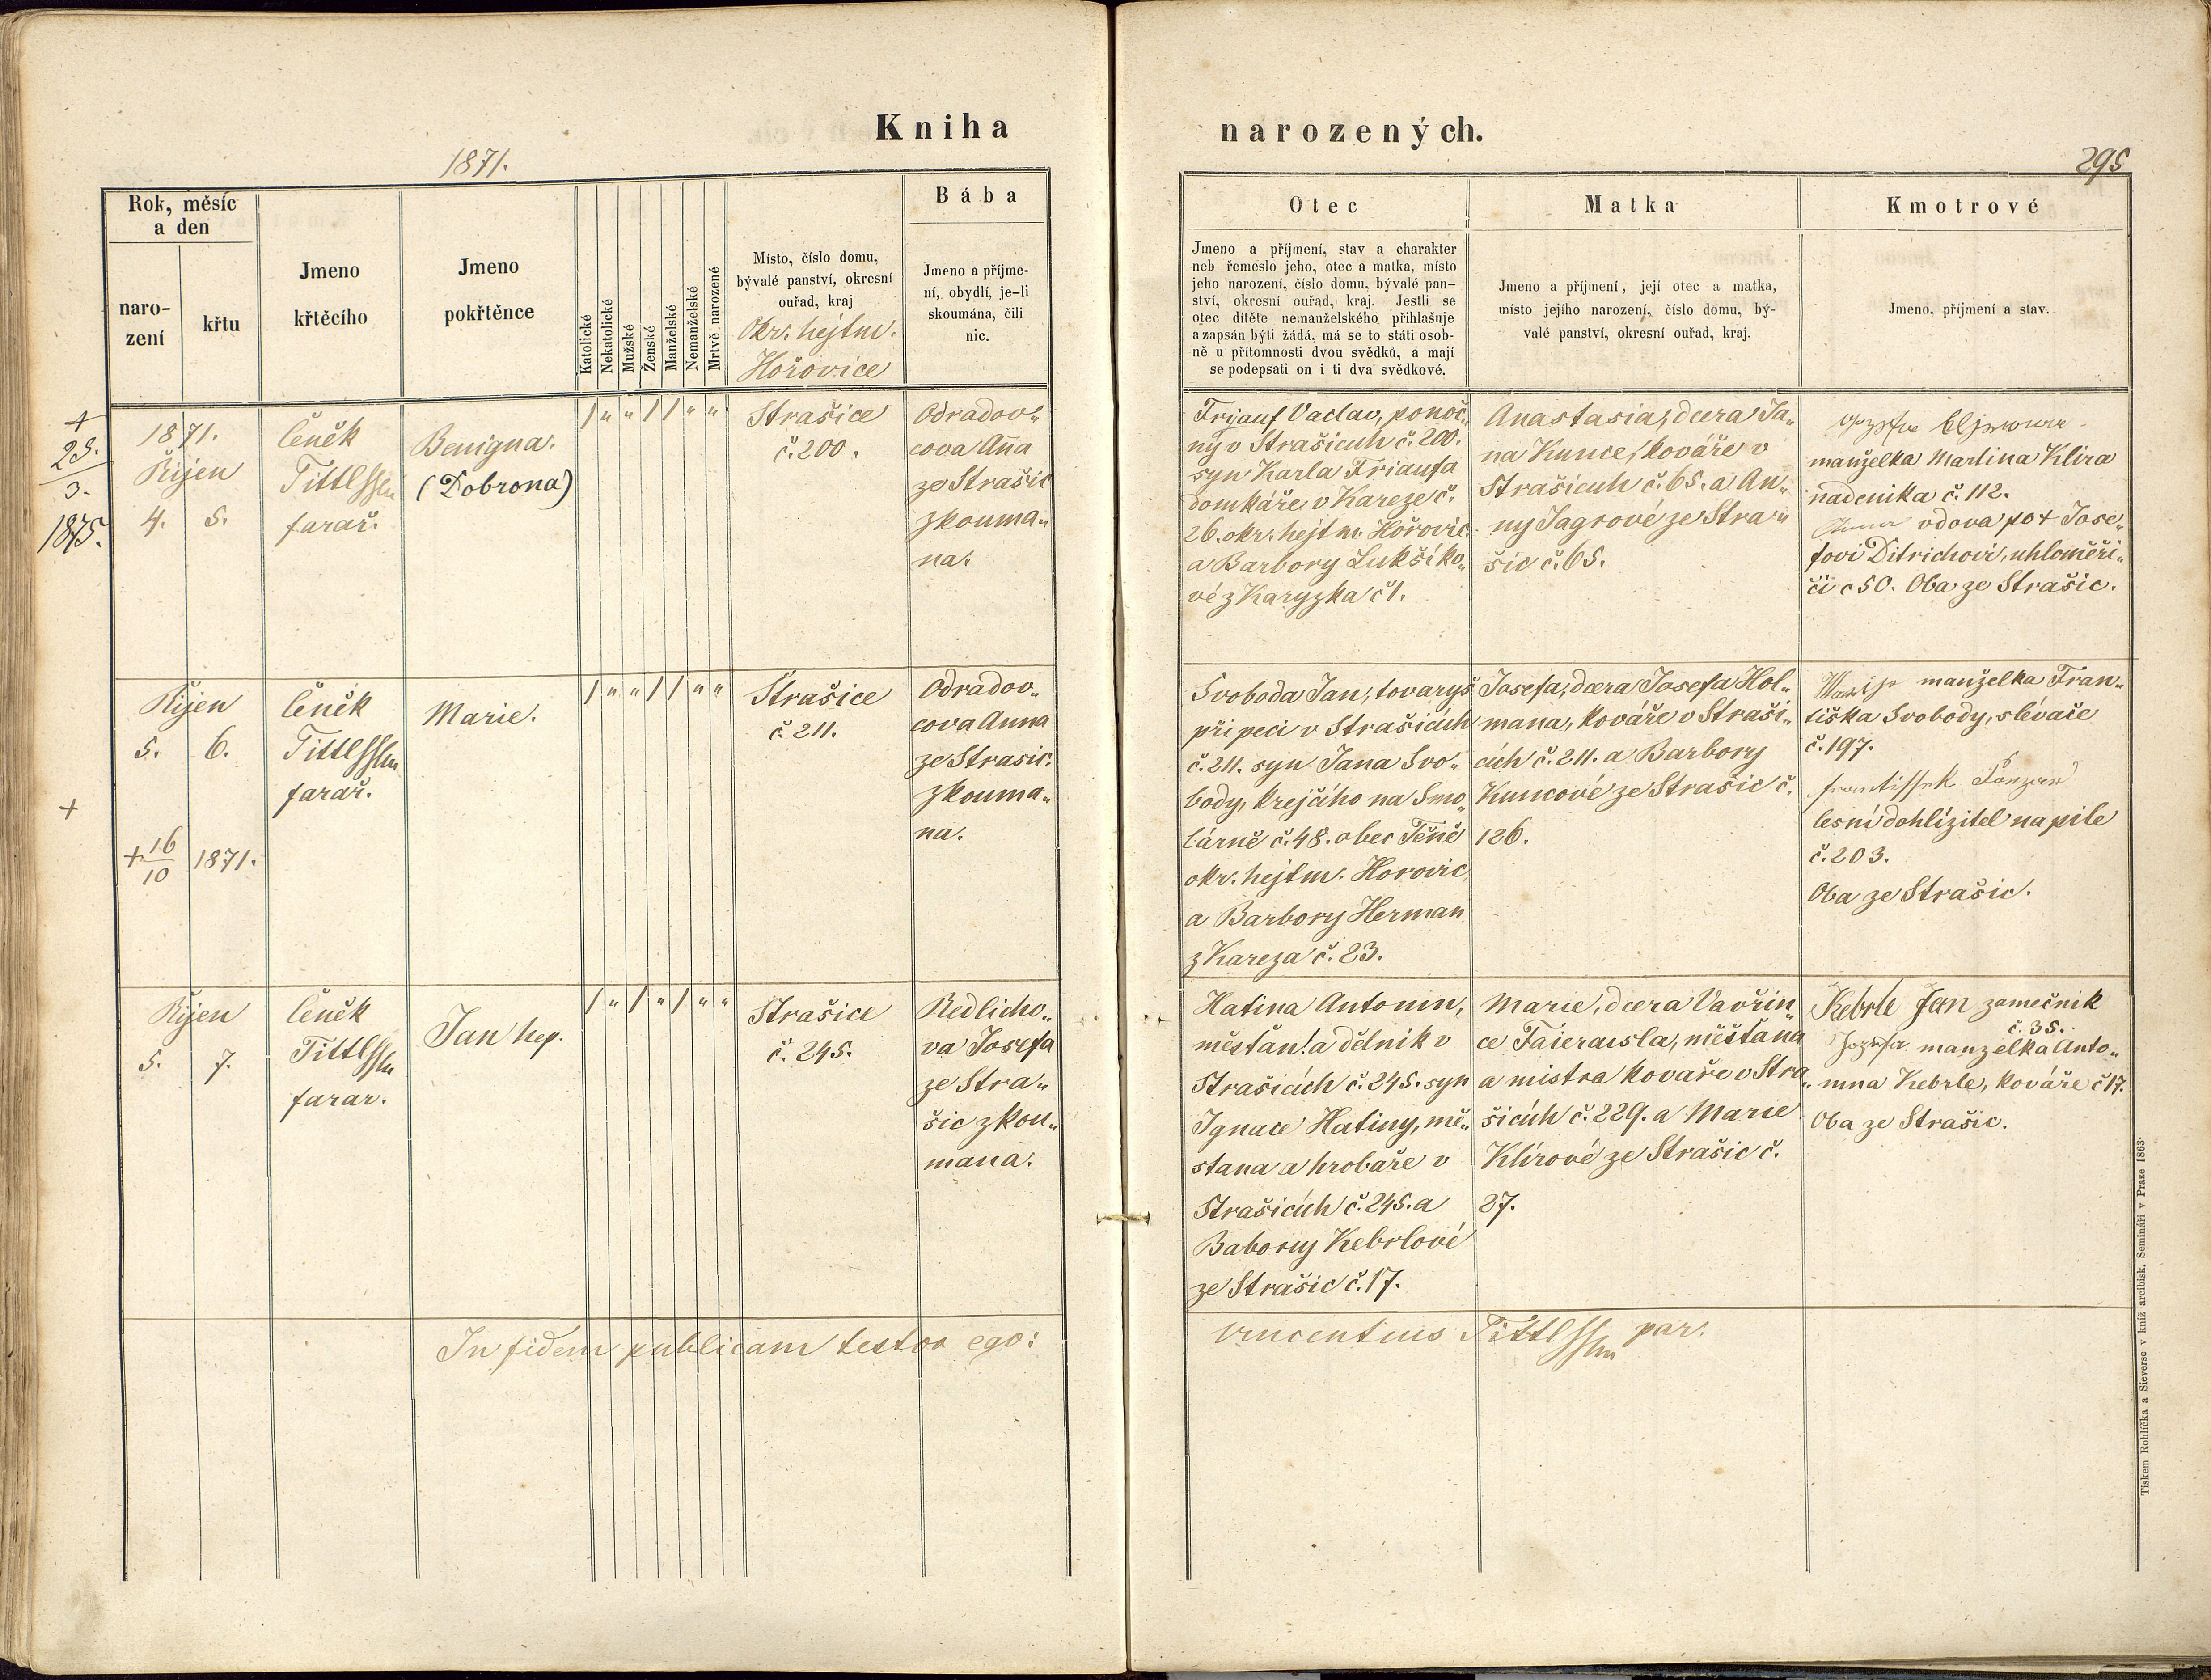 Kniha
narozených.
1871.
295
Rok, měsíc
a den
naro-
zení
křtu
Jmeno
křtěcího
Jmeno
pokřtěnce
Katolické
Nekatolické
Mužské
Ženské
Manželské
Nemanželské
Mrtvě narozené
Místo, číslo domu,
bývalé panství, okresní
ouřad, kraj
Okr. hejtm.
Hořovice
Bába
Jmeno a příjme-
ní, obydlí, je-li
skoumána, čili
nic.
Otec
Jmeno a příjmení, stav a charakter
neb řemeslo jeho, otec a matka, místo
jeho narození, číslo domu, bývalé pan-
ství, okresní ouřad, kraj. Jestli se
otec dítěte nemanželského přihlašuje
a zapsán býti žádá, má se to státi osob-
ně u přítomnosti dvou svědků, a mají
se podepsati on i ti dva svědkové.
Matka
Jmeno a příjmení, její otec a matka,
místo jejího narození, číslo domu, bý-
valé panství, okresní ouřad, kraj.
Kmotrové
Jmeno, příjmení a stav.
+
25.
3.
1875.
1871.
Říjen
4. 5.
Čeněk
Tittl
farař.
Benigna.
(Dobrona)
/ " " / / " "
Strašice
č. 200.
Odradov„
cova Anna
ze Strašic
zkouma„
na.
Friauf Vaclav, ponoč„
ný v Strašicích č. 200.
syn Karla Friaufa
domkáře v Kareze č.
26. okr. hejtm. Hořovic.
a Barbory Lukšíko„
vé z Karyzka č 1.
Anastasia, dcera Ja„
na Kunce, kováře v
Strašicích č. 65. a An„
ny Jagrové ze Stra„
šic č. 65.
manželka Martina Klíra
nadenika č. 112.
vdova po + Jose„
fovi Ditrichovi, uhloměři„
či č 50. Oba ze Strašic.
Říjen
5. 6.
+
+ 16
10
1871.
Čeněk
Tittl
farař.
Marie.
/ " " / / " "
Strašice
č. 211.
Odradov„
cova Anna
ze Strasic.
zkouma„
na.
Svoboda Jan, tovaryš
při peci v Strašicích
č. 211. syn Jana Svo„
body, krejčího na Smo„
lárně č. 48. obec Těně
okr. hejtm. Horovic,
a Barbory Herman
z Kareza č. 23.
Josefa, dcera Josefa Hol„
mana, kováře v Straši„
cích č. 211. a Barbory
Kuncové ze Strašic č.
126.
manželka Fran„
tiška Svobody, slévače
č. 197.
frantissek
lesní dohlížitel na pile
č. 203.
Oba ze Strašic.
Říjen
5. 7.
Čeněk
Tittl
farar.
Jan Nep.
/ " / " / " "
Strašice
č. 245.
Redlicho„
va Josefa
ze Stra„
šic zkou„
mana.
Hatina Antonin,
měsťan a dělnik v
Strašicích č. 245. syn
Ignace Hatiny, mě„
stana a hrobaře v
Strašicích č. 245. a
Babory Kebrlové
ze Strašic č. 17.
Marie, dcera Vavřin„
ce Taieraisla, měšťana
a mistra kovaře v Stra„
šicích č. 229. a Marie
Klírové ze Strašic č.
27.
Kebrle Jan zamečnik
č. 35.
Jozefa manželka Anto„
nina Kebrle, kováře č 17.
Oba ze Strašic.
In fidem publicam testor ego:
Vincentius Tittl par.
Tiskem Rohlíčka a Sieverse v kníž. arcibisk. Semináři v Praze 1863.